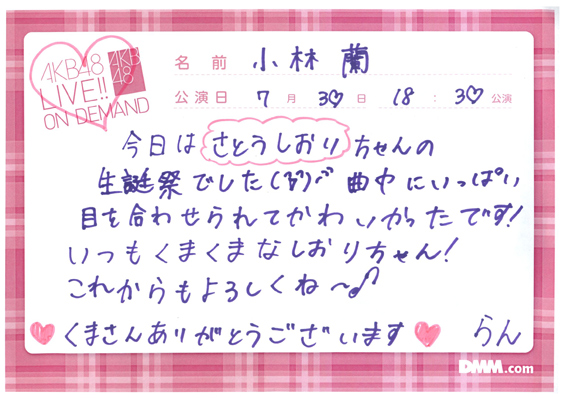 AKB48
LIVE!!
ON DEMAND
AKB
48
名前 小林 蘭
公演日 7月30日 18:30公演
今日は さとうしおり ちゃんの
生誕祭でした 曲中にいっぱい
目を合わせられてかわいかったです!
いつもくまくまなしおりちゃん!
これからもよろしくね〜♪
♥くまさんありがとうございます♥ らん
DMM.com